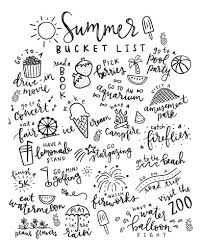 Summer
BUCKET LIST
GO TO a
drive-in
movie
read
a
BOOK
PICK
berries
go to a
Pool
party
GO TO a
concert
GO TO an
aquarium
GO TO an
amusement
park
visit a
fair
ice
cream
HAVE a
campfire
catch
fireflies
HAVE a
lemonade
STAND
GO
stargazing
go to the
beach
finish a
5K
GO MINI
golfing
WATCH
fireworks
ROAD TRIP
visit the
ZOO
eat
watermelon
PLAY
in the
rain
HAVE a
water
balloon
FIGHT